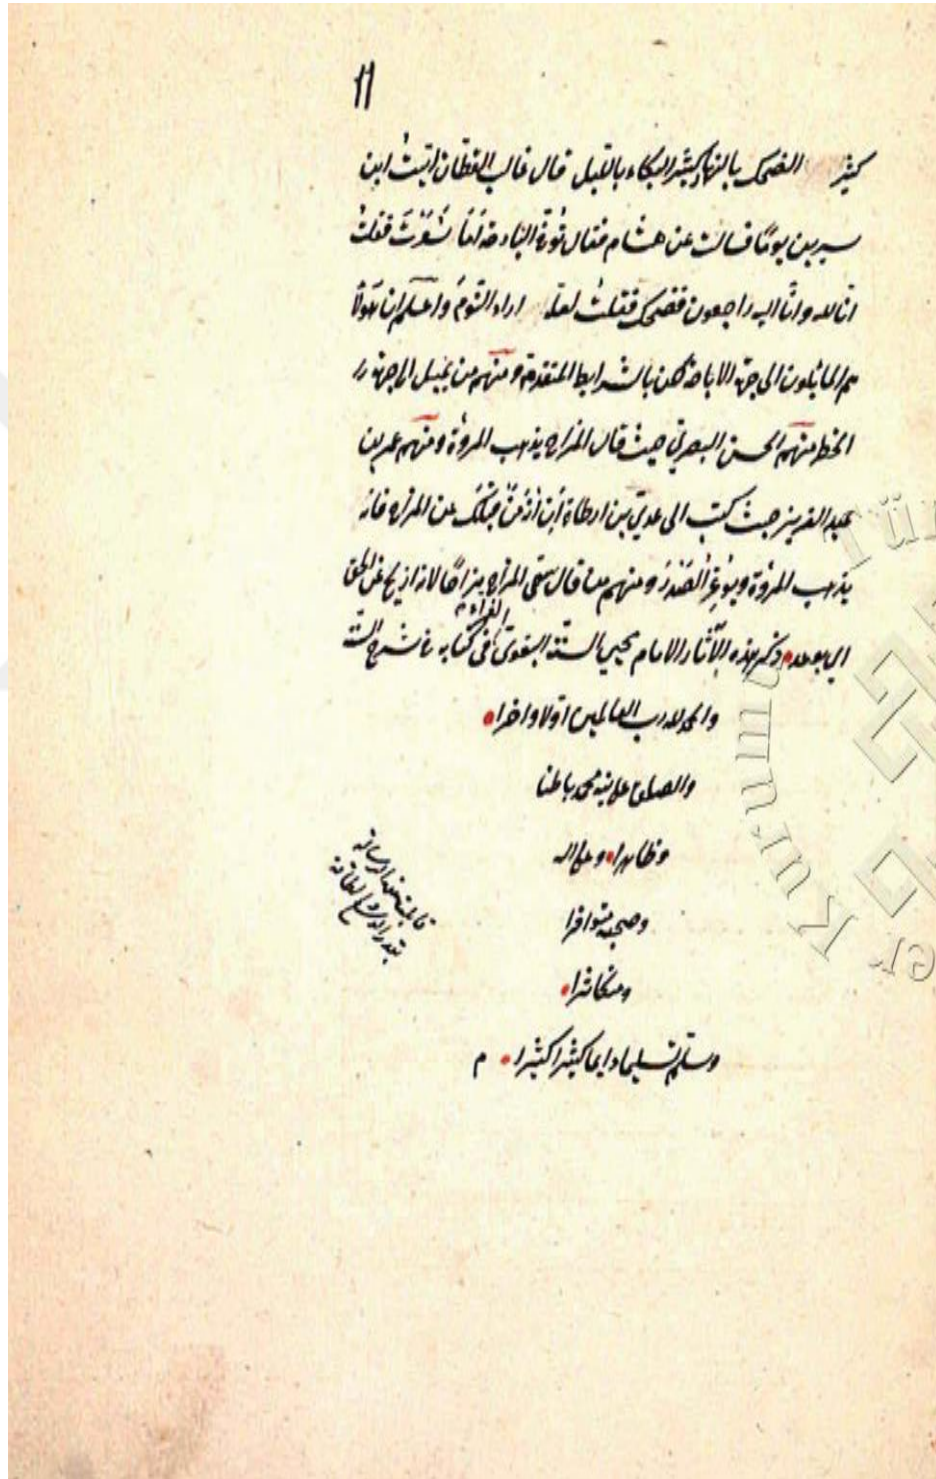 ١١
كثير الضحك بالنهار كثير البكاء بالليل قال غالب القطان اتيت ابن
سيرين يومًا فسالت عن هشام فقال توفي البارحة اَمَا شَعَرْتَ فقلتُ
انا لله وانّا اليه راجعون فضحك فقلت لعلّه اراد النوم وَاعلم ان هَؤلآ
هم المائلون الى جهة الاباحة لكن بالشرايط المتقدمة ومنهم من يميل الى جهة
الخطر منهم الحسن البصري حيث قال المزاح يذهب المروة ومنهم عمر بن
عبد العزيز حيث كتب الى عدي بن ارطاة قبلك عن المزاح فانه
يذهب المروة ويُوغِرُ الصَدْرَ ومنهم من قال سمّى المزاح مزاحًا لانه ازيح عن الحق
اي بوعد ذكر هذه الآثار الامام محيي السنّة البغوي الفراء في كتابه شرح السنة
والحمد لله رب العالمين اولا واخرا
والصلوة على نبيه محمد باطنا
وظاهرا وعلى اله
وصحبه متوافرا
ومتكاثرا
وسلّم تسليما دايما كثيرا كثيرا م
Kurumu